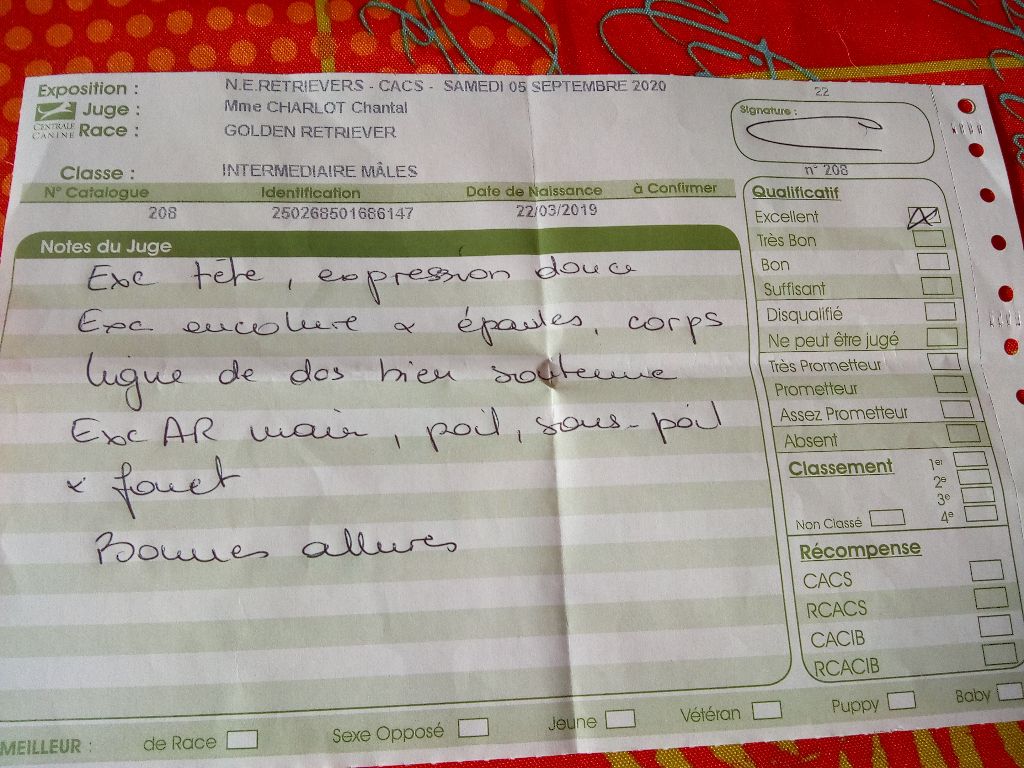 Exposition : N.E.RETRIEVERS - CACS - SAMEDI 05 SEPTEMBRE 2020
Juge : Mme CHARLOT Chantal
CENTRALE CANINE Race : GOLDEN RETRIEVER
Classe : INTERMEDIAIRE MÂLES
N° Catalogue Identification Date de Naissance à Confirmer
208 250268501686147 22/03/2019
Notes du Juge
Exc tête, expression douce
Exc encolure & épaules, corps
ligne de dos bien soutenue
Exc AR main, poil, sous-poil
& fouet
Bonnes allures
22
Signature :
n° 208
Qualificatif
Excellent
Très Bon
Bon
Suffisant
Disqualifié
Ne peut être jugé
Très Prometteur
Prometteur
Assez Prometteur
Absent
Classement 1er
2e
3e
Non Classé 4e
Récompense
CACS
RCACS
CACIB
RCACIB
MEILLEUR : de Race Sexe Opposé Jeune Vétéran Puppy Baby